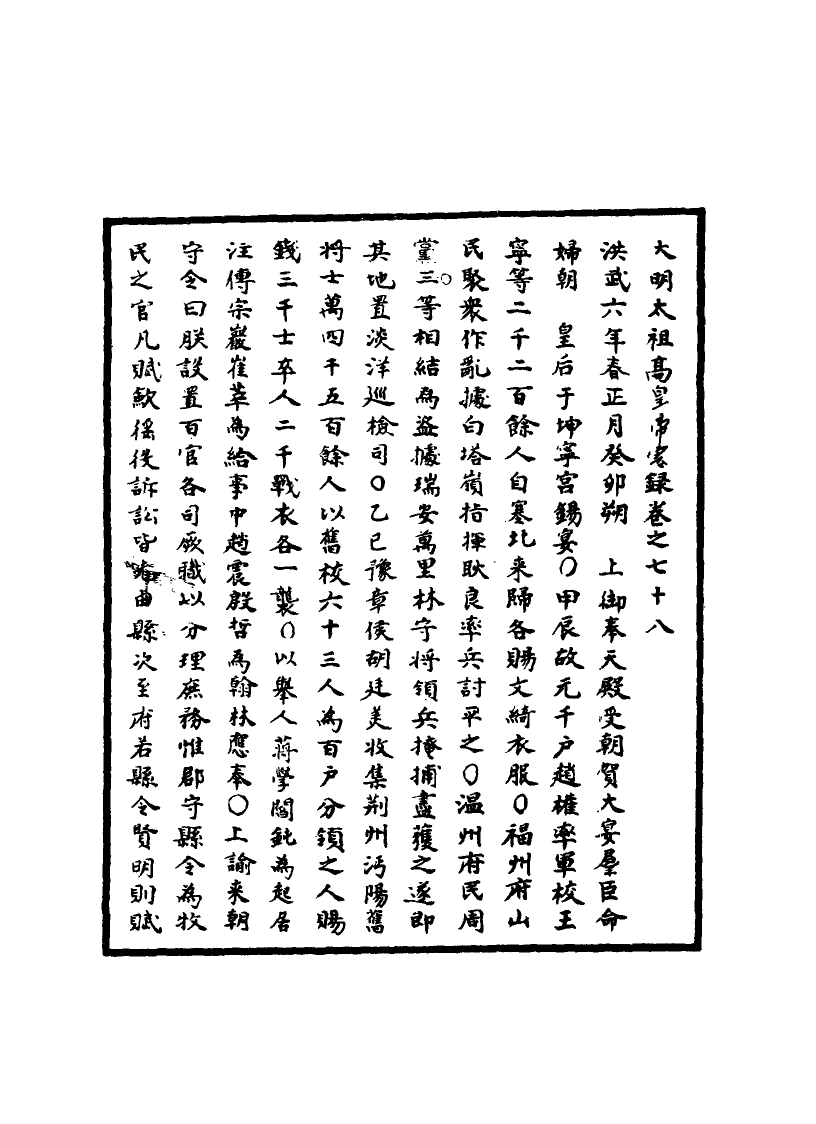 大明太祖高皇帝實録卷之七十八
洪武六年春正月癸卯朔　上御奉天殿受朝賀大宴羣臣命
婦朝　皇后于坤寧宮錫宴〇甲辰故元千戸趙權率軍校王
寧等二千二百餘人自塞北来歸各賜文綺衣服〇福州府山
民聚衆作亂據白塔嶺指揮耿良率兵討平之〇温州府民周
黨三等相結為盗據瑞安萬里林守将領兵掩捕盡獲之遂即
其地置淡洋巡檢司〇乙巳豫章侯胡廷美收集荆州沔陽舊
将士萬四千五百餘人以舊校六十三人為百戸分領之人賜
錢三千士卒人二千戰衣各一襲〇以舉人蔣學閻鈍為起居
注傅宗巖崔莘為給事中趙震殷哲為翰林應奉〇上諭来朝
守令曰朕設置百官各司厥職以分理庶務惟郡守縣令為牧
民之官凡賦歛徭役訴訟皆由縣次至府若縣令賢明則賦